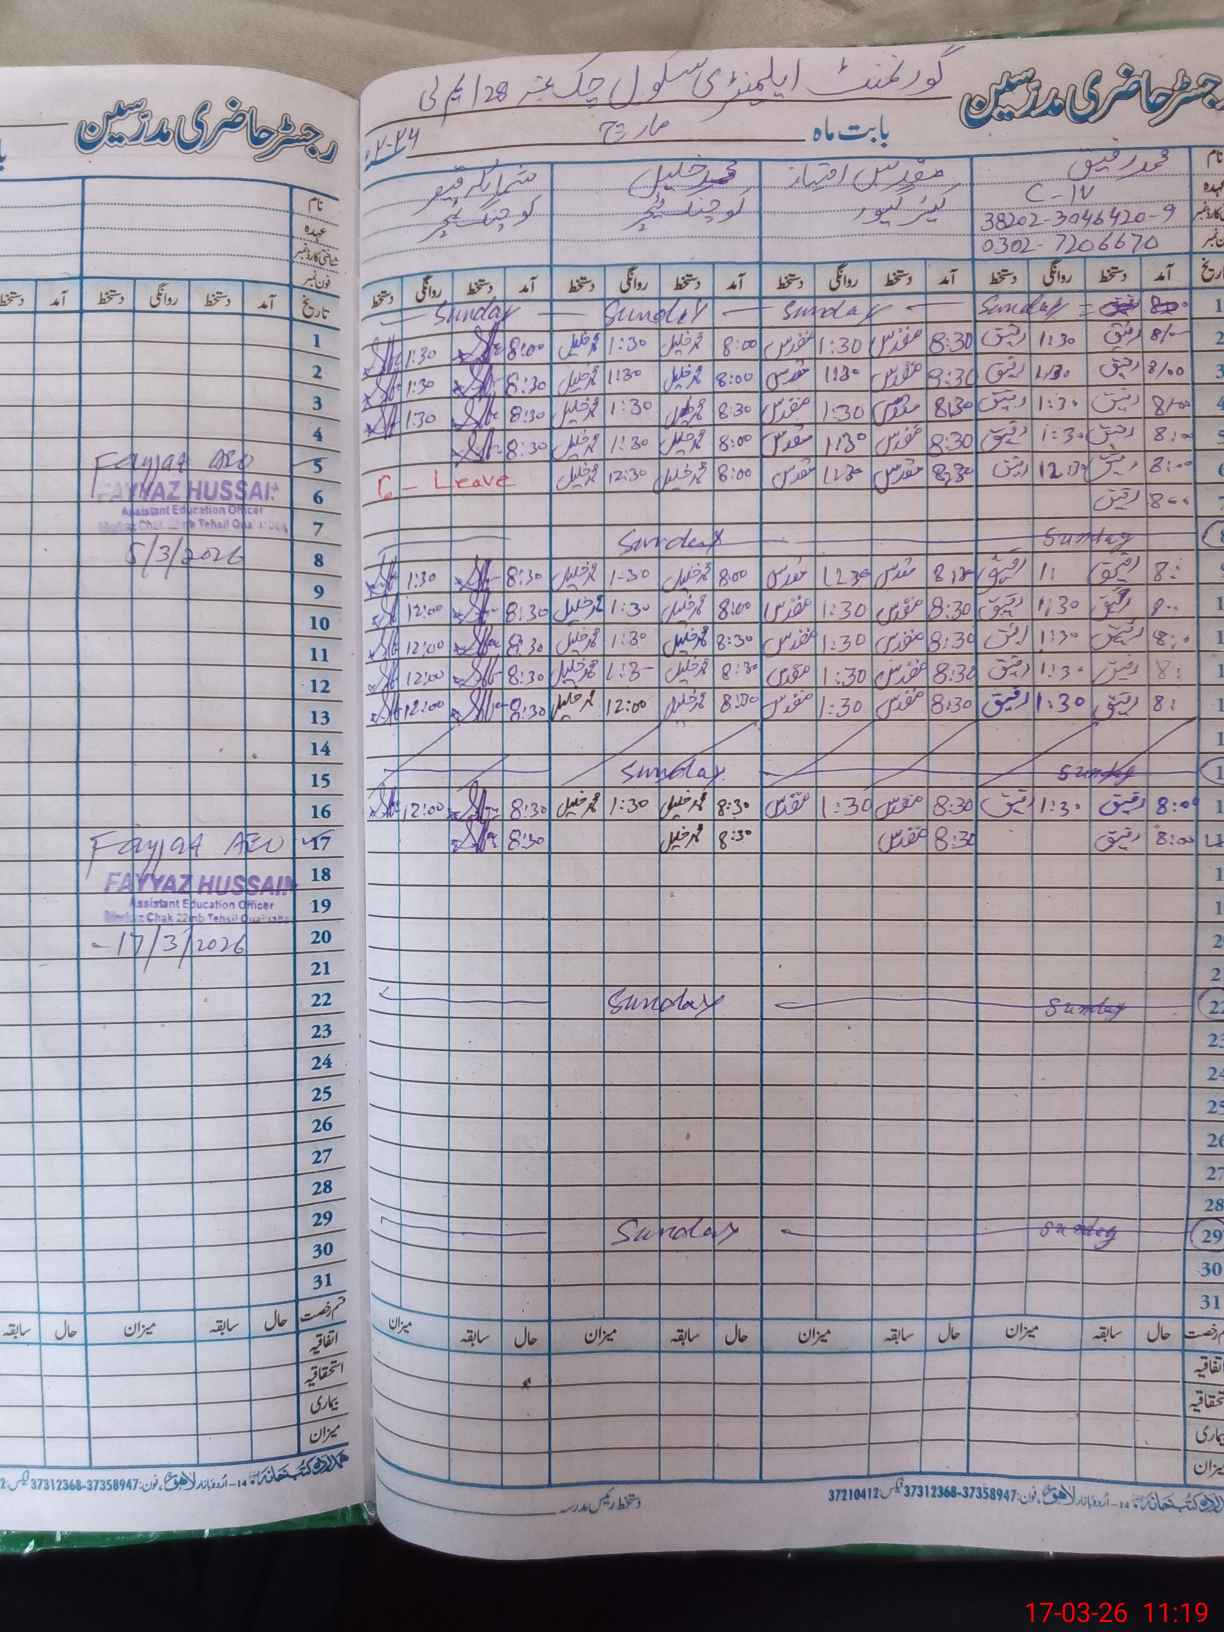 رجسٹر حاضری مدرسین
گورنمنٹ ایلیمنٹری سکول چک نمبر 28 ایم بی
رجسٹر حاضری مدرسین
بابت ماہ مارچ
نام
محمد رفیق
مقدس امتیاز
محمد خلیل
عہدہ
C-IV
کیئر گیور
کوچنگ ٹیچر
کوچنگ ٹیچر
38202-3046420-9
0302-7206670
نام
عہدہ
شناختی کارڈ نمبر
فون نمبر
تاریخ آمد دستخط روانگی دستخط آمد دستخط روانگی دستخط آمد دستخط روانگی دستخط آمد دستخط روانگی دستخط
تاریخ آمد دستخط روانگی دستخط آمد دستخط
1 8:00 رفیق Sunday Sunday Sunday Sunday
2 8:00 رفیق 1:30 رفیق 8:30 مقدس 1:30 مقدس 8:00 محمد خلیل 1:30 محمد خلیل 8:00 1:30
3 8:00 رفیق 1:30 رفیق 8:30 مقدس 1:30 مقدس 8:00 محمد خلیل 1:30 محمد خلیل 8:30 1:30
4 8:00 رفیق 1:30 رفیق 8:30 مقدس 1:30 مقدس 8:30 محمد خلیل 1:30 محمد خلیل 8:30 1:30
5 8:00 رفیق 1:30 رفیق 8:30 مقدس 1:30 مقدس 8:00 محمد خلیل 1:30 محمد خلیل 8:30
8:00 رفیق 12:30 رفیق 8:30 مقدس مقدس 8:00 محمد خلیل 12:30 محمد خلیل C - Leave
8:00 رفیق
Sunday Sunday
رفیق رفیق مقدس مقدس 8:00 محمد خلیل 1:30 محمد خلیل 8:30 1:30
8:00 رفیق 1:30 رفیق 8:30 مقدس 1:30 مقدس 8:00 محمد خلیل 1:30 محمد خلیل 8:30 12:00
رفیق 1:30 رفیق 8:30 مقدس 1:30 مقدس 8:30 محمد خلیل 1:30 محمد خلیل 8:30 12:00
رفیق 1:30 رفیق 8:30 مقدس 1:30 مقدس 8:30 محمد خلیل محمد خلیل 8:30 12:00
رفیق 1:30 رفیق 8:30 مقدس 1:30 مقدس 8:00 محمد خلیل 12:00 محمد خلیل 8:30 12:00
Sunday Sunday
8:00 رفیق 1:30 رفیق 8:30 مقدس 1:30 مقدس 8:30 محمد خلیل 1:30 محمد خلیل 8:30 12:00
8:00 رفیق 8:30 مقدس 8:30 محمد خلیل 8:30
22 Sunday Sunday
23
24
25
26
27
28
29 Sunday Sunday
30
31
حال سابقہ میزان حال سابقہ میزان حال سابقہ میزان حال سابقہ میزان
اتفاقیہ
استحقاقیہ
بیماری
میزان
دستخط رئیس مدرسہ
فون: 37312368-37358947 فیکس: 37210412
1
2
3
4
5
Fayyaz AEO
6
FAYYAZ HUSSAIN
Assistant Education Officer
7
8
5/3/2026
9
10
11
12
13
14
15
16
17
Fayyaz AEO
18
FAYYAZ HUSSAIN
19
Assistant Education Officer
Markaz Chak 22mb Tehsil Quaidabad
20
17/3/2026
21
22
23
24
25
26
27
28
29
30
31
قسم رخصت حال سابقہ میزان حال سابقہ
اتفاقیہ
استحقاقیہ
بیماری
میزان
ہمدرد کتب خانہ 14-اردو بازار لاہور، فون: 37312368-37358947
17-03-26 11:19